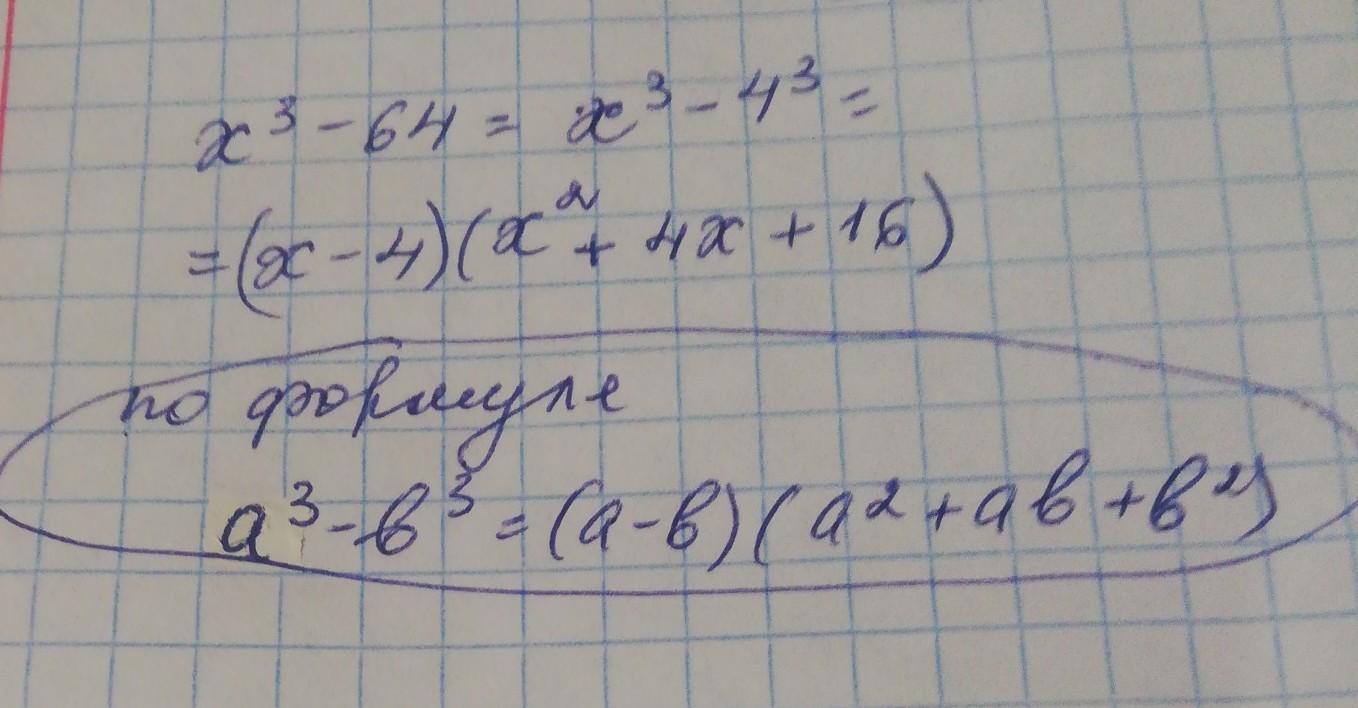 x³ - 64 = x³ - 4³ =
= (x - 4)(x² + 4x + 16)
по формуле
a³ - b³ = (a - b)(a² + ab + b²)